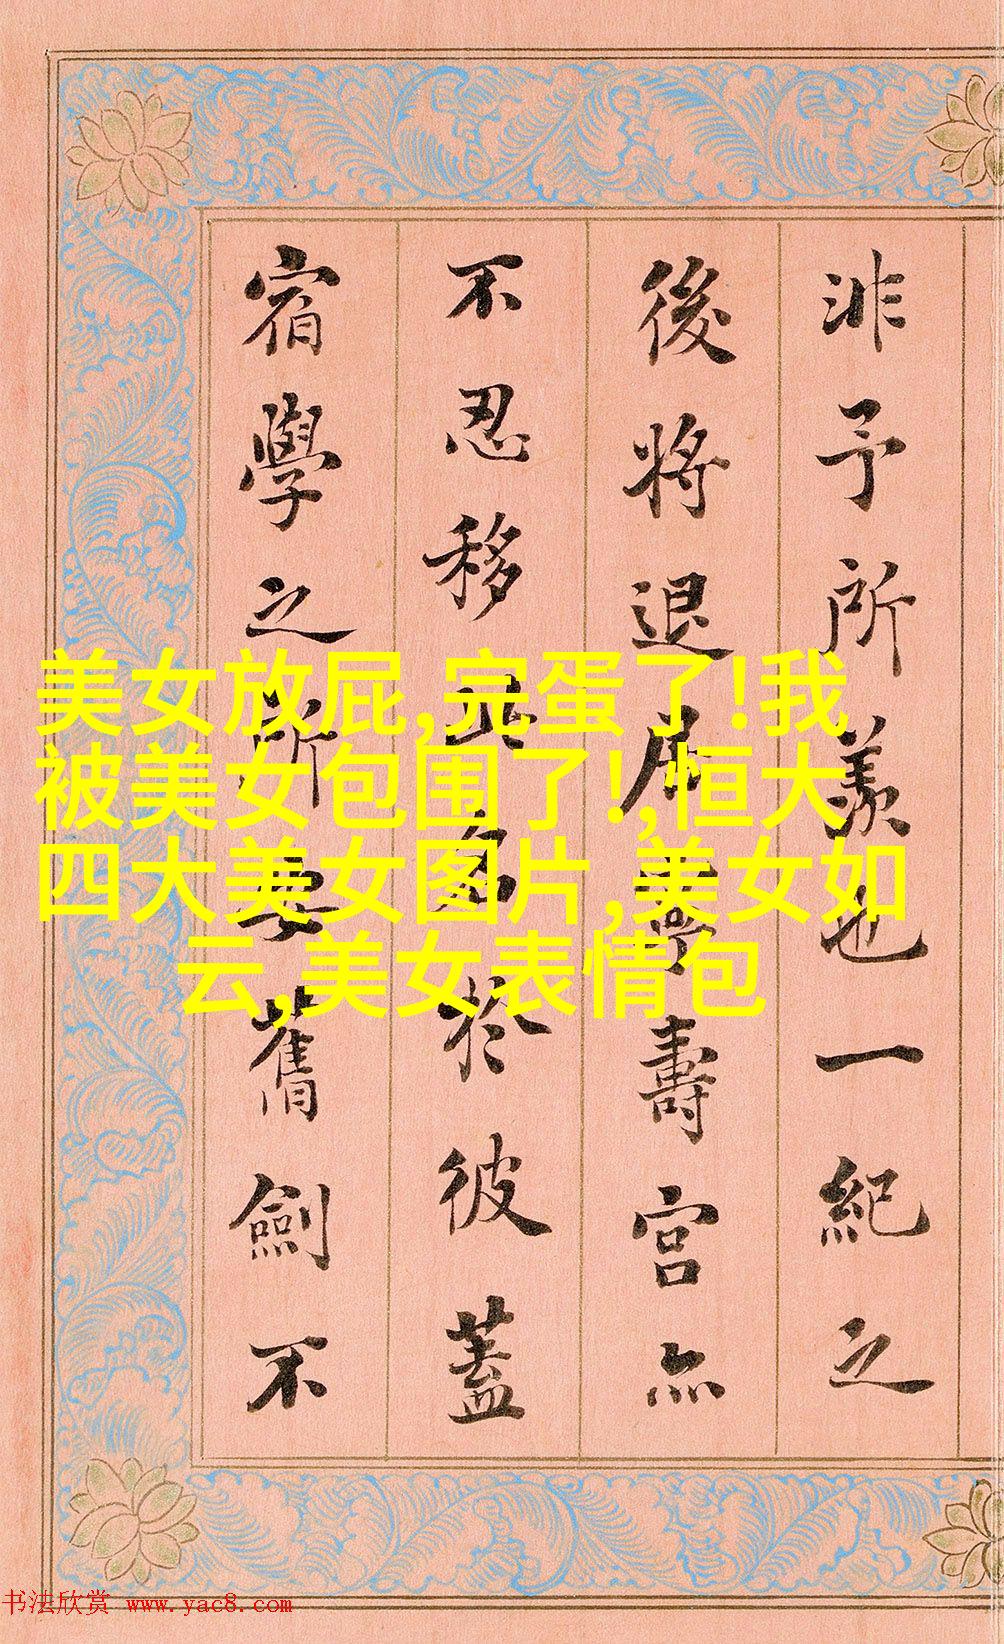 非予所羨也一紀之
後將退居寧壽宮亦
不忍移此多於彼蓋
宿學之所安舊劍不
美女放屁,完蛋了!我
被美女包围了!,恒大
四大美女图片,美女如
云,美女表情包
书法欣赏 www.yac8.com